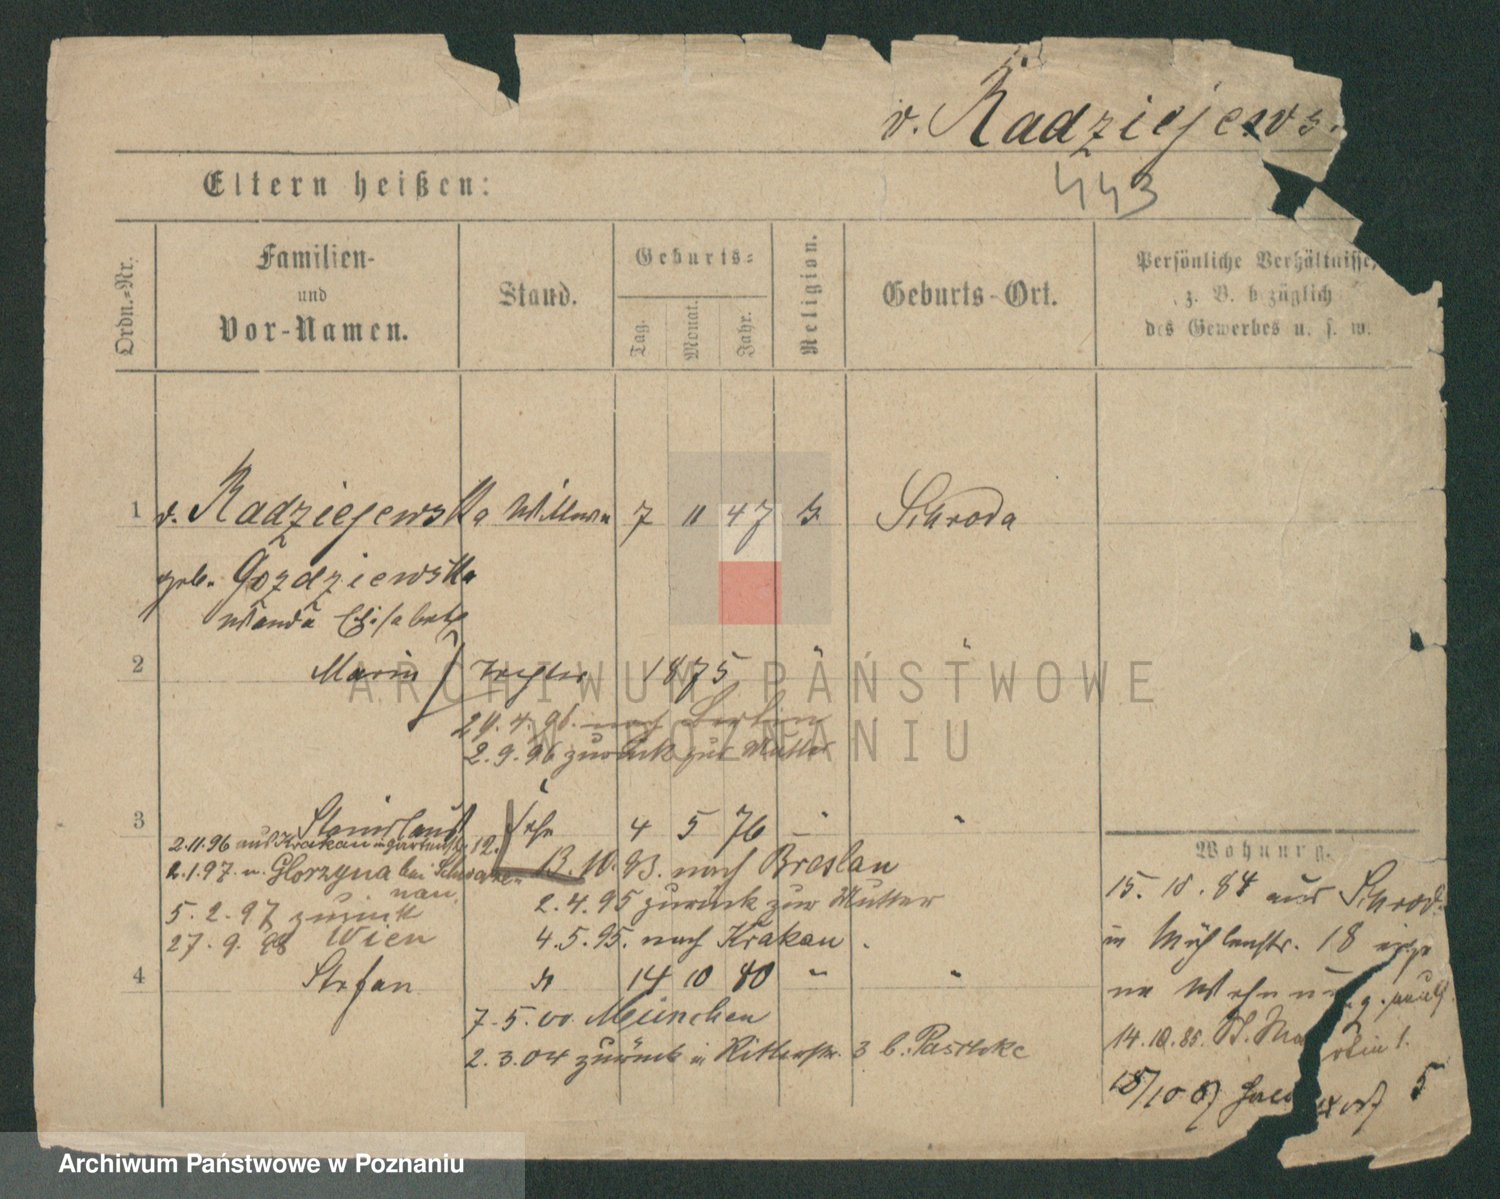 v. Radziejews.
443
Eltern heißen:
Ordn.-Nr.
Familien-
und
Vor-Namen.
Stand.
Geburts-
Tag.
Monat.
Jahr.
Religion.
Geburts-Ort.
Persönliche Verhältnisse,
z. B. bezüglich
des Gewerbes u. s. w.
1 v. Radziejewska Wittwe 7 11 47 Schroda
geb. Gozdziewska
Wanda Elisabeth
2 Maria Tochter 1875 " "
29.4.96. nach Berlin
2.9.96 zurück zur Mutter
3 Stanislaus Sohn 4 5 76 " "
2.11.96 aus Krakau 12.
2.1.97. n. Glorzyna bei
nau.
13.10.93. nach Breslau
5.2.97 zurück
2.4.95 zurück zur Mutter
27.9.98 Wien
4.5.95. nach Krakau.
4 Stefan 14 10 80 " "
7.5.00. München
2.3.04 zurück in Ritterstr. 3 b. Paschke
Wohnung.
15.10.84 aus Schroda
in Mühlenstr. 18
14.10.85. St. Martin 1.
18/10 87 5
ARCHIWUM PAŃSTWOWE
W POZNANIU
Archiwum Państwowe w Poznaniu